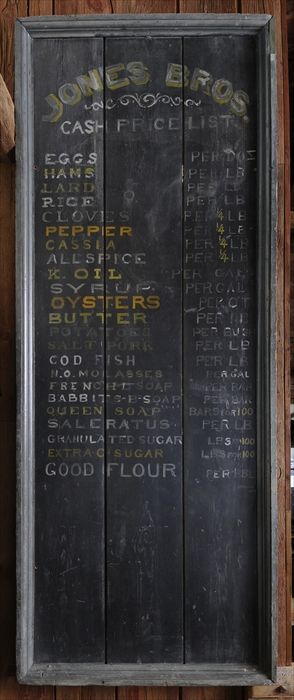 JONES BROS.
CASH PRICE LIST.
EGGS PER DOZ
HAMS PER LB
LARD PER LB
RICE PER LB
CLOVES PER ¼ LB
PEPPER PER ¼ LB
CASSIA PER ¼ LB
ALLSPICE PER ¼ LB
K. OIL PER GAL
SYRUP PER GAL
OYSTERS PER QT
BUTTER PER LB
POTATOES PER BUS
SALT PORK PER LB
COD FISH PER LB
N.O. MOLASSES PER GAL
FRENCH SOAP PER BAR
BABBITS B SOAP PER BAR
QUEEN SOAP BARS FOR 100
SALERATUS PER LB
GRANULATED SUGAR LBS FOR 100
EXTRA C SUGAR LBS FOR 100
GOOD FLOUR PER BBL